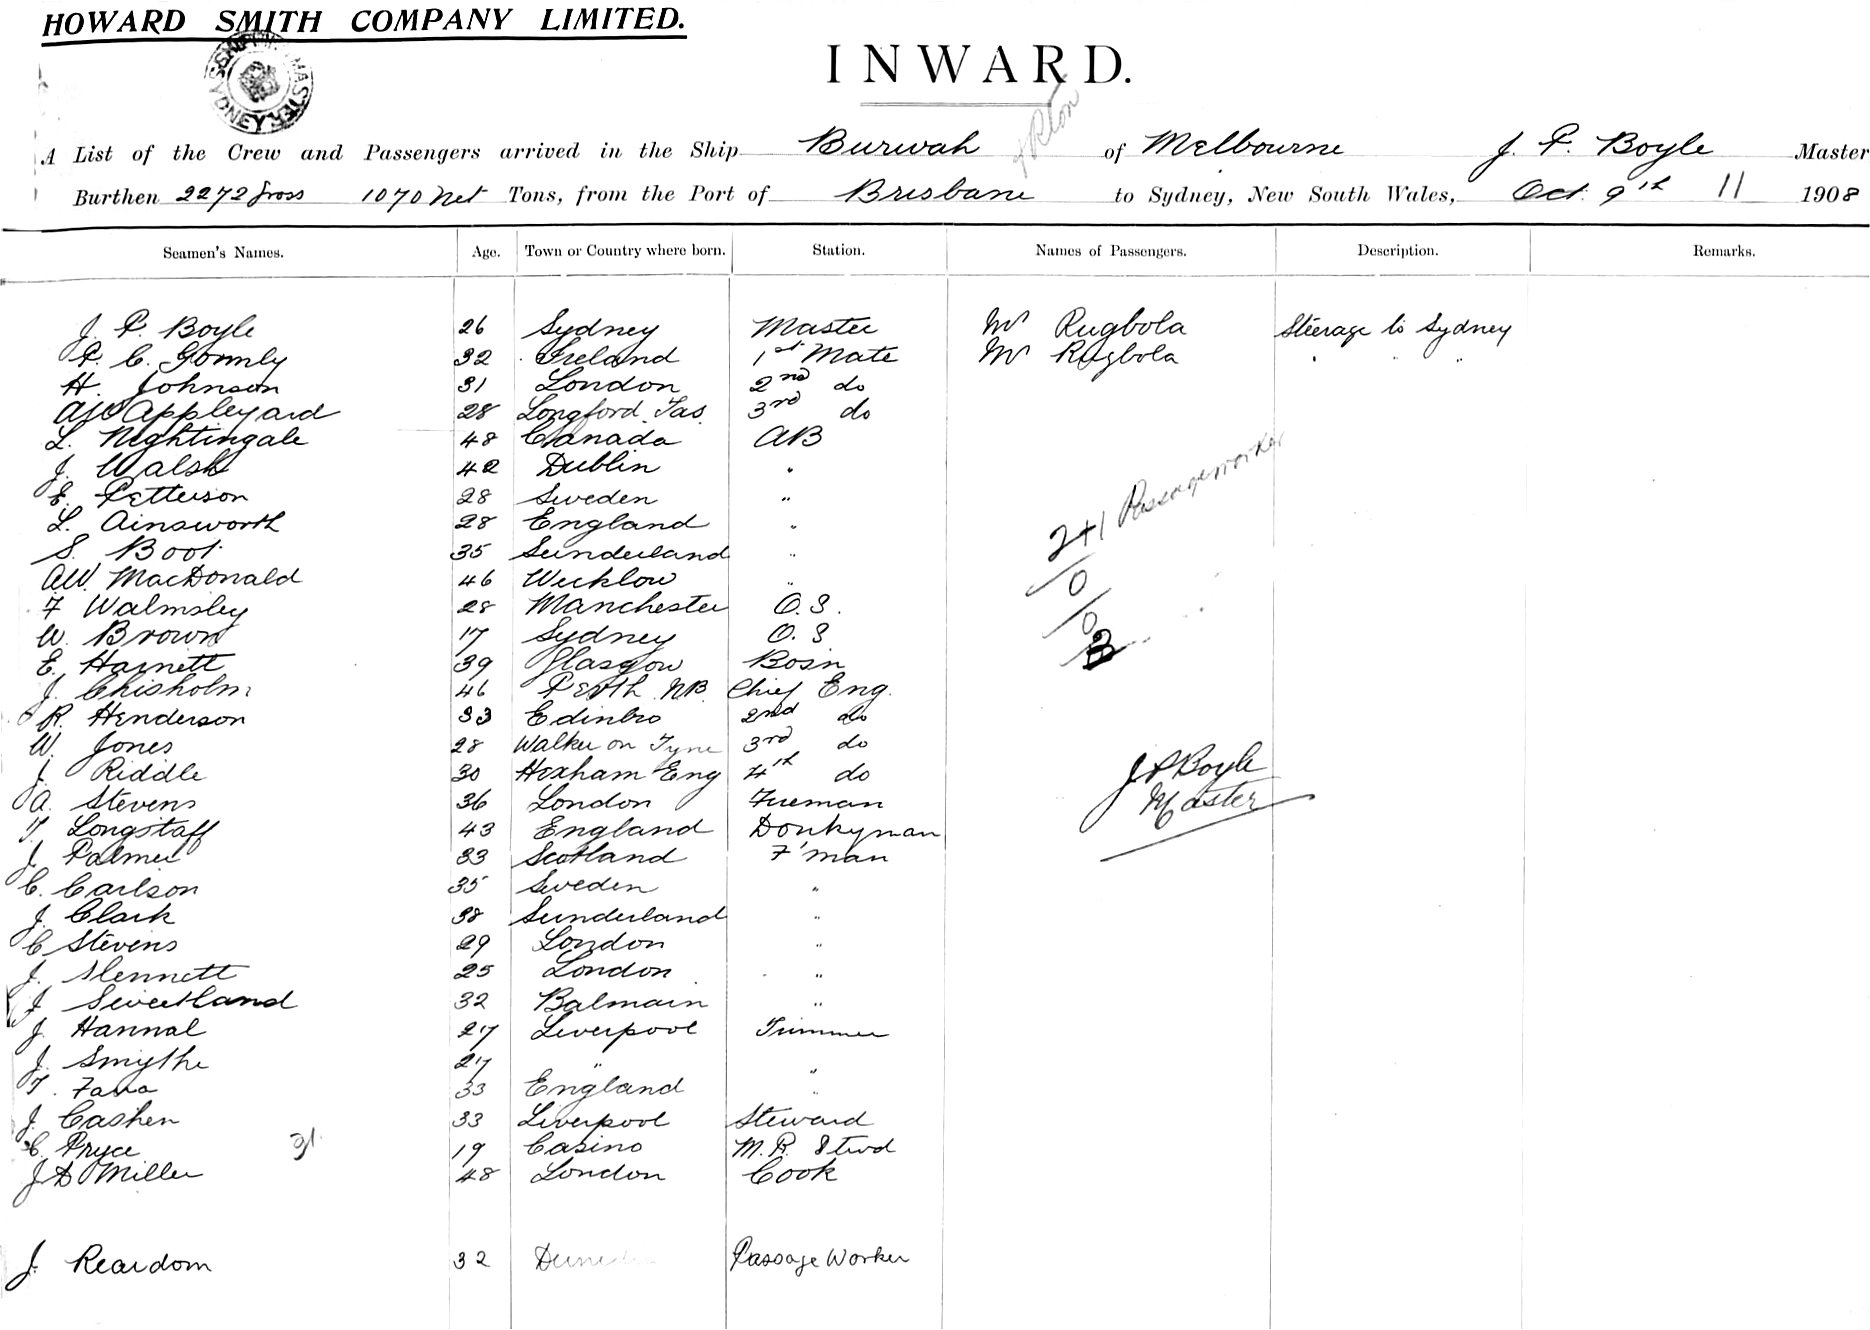 HOWARD SMITH COMPANY LIMITED.
INWARD.
A List of the Crew and Passengers arrived in the Ship Burwah of Melbourne J. P. Boyle Master
Burthen 2272 gross 1070 Net Tons, from the Port of Brisbane to Sydney, New South Wales, Oct. 9th 11 1908
Seamen's Names. Age. Town or Country where born. Station. Names of Passengers. Description. Remarks.
J. P. Boyle 26 Sydney Master Mr Rugbola Steerage to Sydney
P. C. Gormly 32 Ireland 1st Mate Mr Rugbola " " "
H. Johnson 31 London 2nd do
AJC Appleyard 28 Longford Tas. 3rd do
L. Nightingale 48 Canada AB
J. Walsh 42 Dublin "
E. Petterson 28 Sweden "
L. Ainsworth 28 England "
S. Boot 35 Sunderland "
A.W. MacDonald 46 Wicklow "
F Walmsley 28 Manchester O.S.
W. Brown 17 Sydney O.S
E. Harnett 39 Glasgow Bosn
J. Chisholm 46 Perth N.B. Chief Eng.
R. Henderson 33 Edinbro 2nd do
W. Jones 28 Walker on Tyne 3rd do
J. Riddle 30 Hexham Eng 4th do
A. Stevens 36 London Fireman
T. Longstaff 43 England Donkyman
J. Palmer 33 Scotland F'man
C. Carlson 35 Sweden "
J. Clark 38 Sunderland "
C Stevens 29 London "
J. Slennett 25 London "
J Sweetland 32 Balmain "
J. Hannal 27 Liverpool Trimmer
J. Smythe 27 " "
T. 33 England "
J. Cashen 33 Liverpool Steward
C. Pryce 19 Casino M.R. Stwd
31
J D Miller 48 London Cook
J. Reardom 32 Passage Worker
2+1 Passageworker
0
0
3
J P Boyle
Master